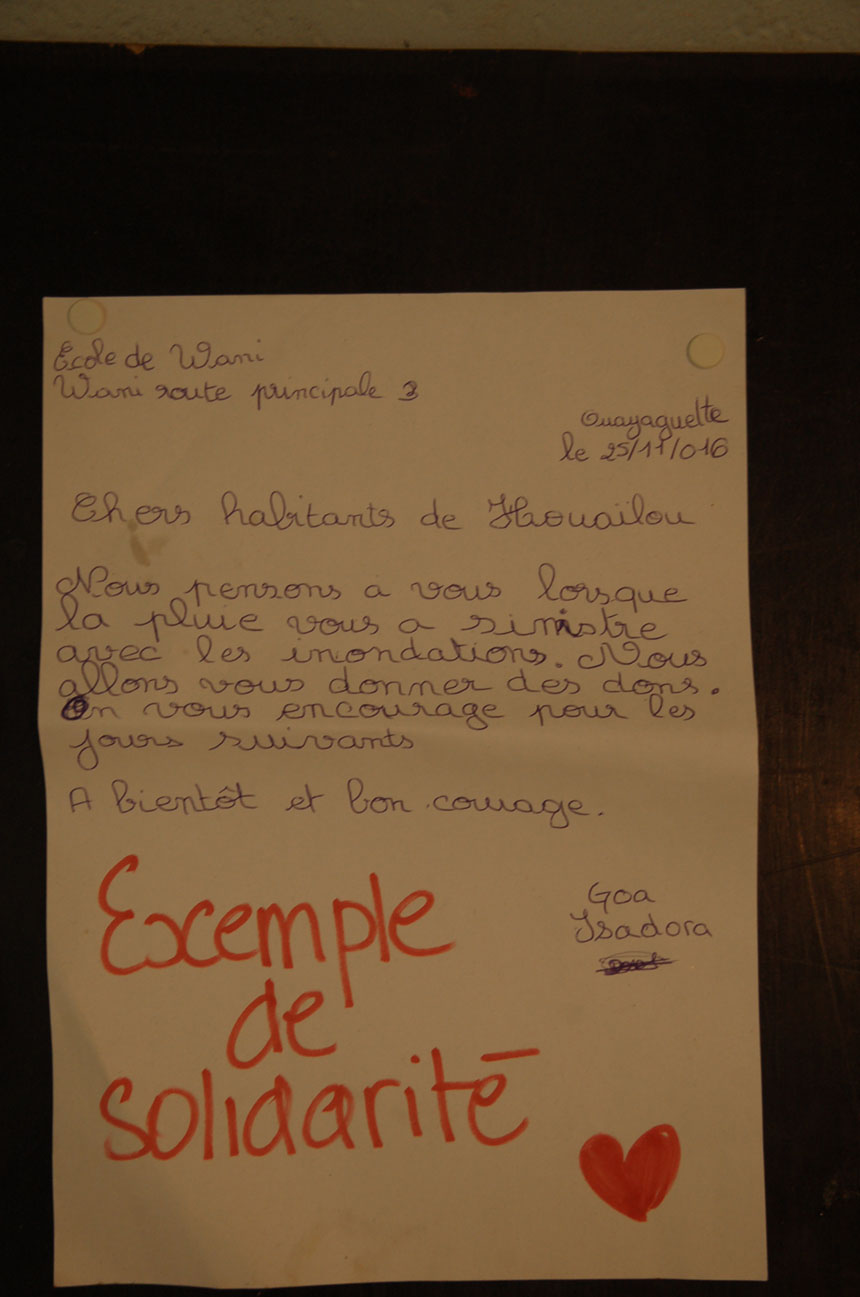 Ecole de Wani
Wani route principale 3
Ouayaguette
le 25/11/016
Chers habitants de Houaïlou
Nous pensons a vous lorsque
la pluie vous a sinistre
avec les inondations. Nous
allons vous donner des dons.
On vous encourage pour les
jours suivants
A bientôt et bon courage.
Goa
Isadora
Exemple
de
solidarité